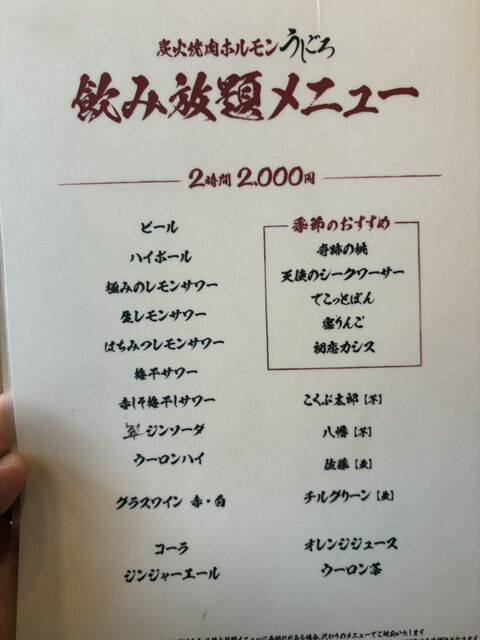 炭火焼肉ホルモン うしごろ
飲み放題メニュー
2時間 2,000円
ビール
ハイボール
極みのレモンサワー
生レモンサワー
はちみつレモンサワー
梅干サワー
赤しそ梅干しサワー
翠ジンソーダ
ウーロンハイ
グラスワイン 赤・白
コーラ
ジンジャーエール
季節のおすすめ
奇跡の桃
天使のシークワーサー
でこっとぽん
蜜りんご
初恋カシス
こくぶ太郎【芋】
八幡【芋】
佐藤【麦】
チルグリーン【麦】
オレンジジュース
ウーロン茶
場合、代わりのメニューでご対応いたします